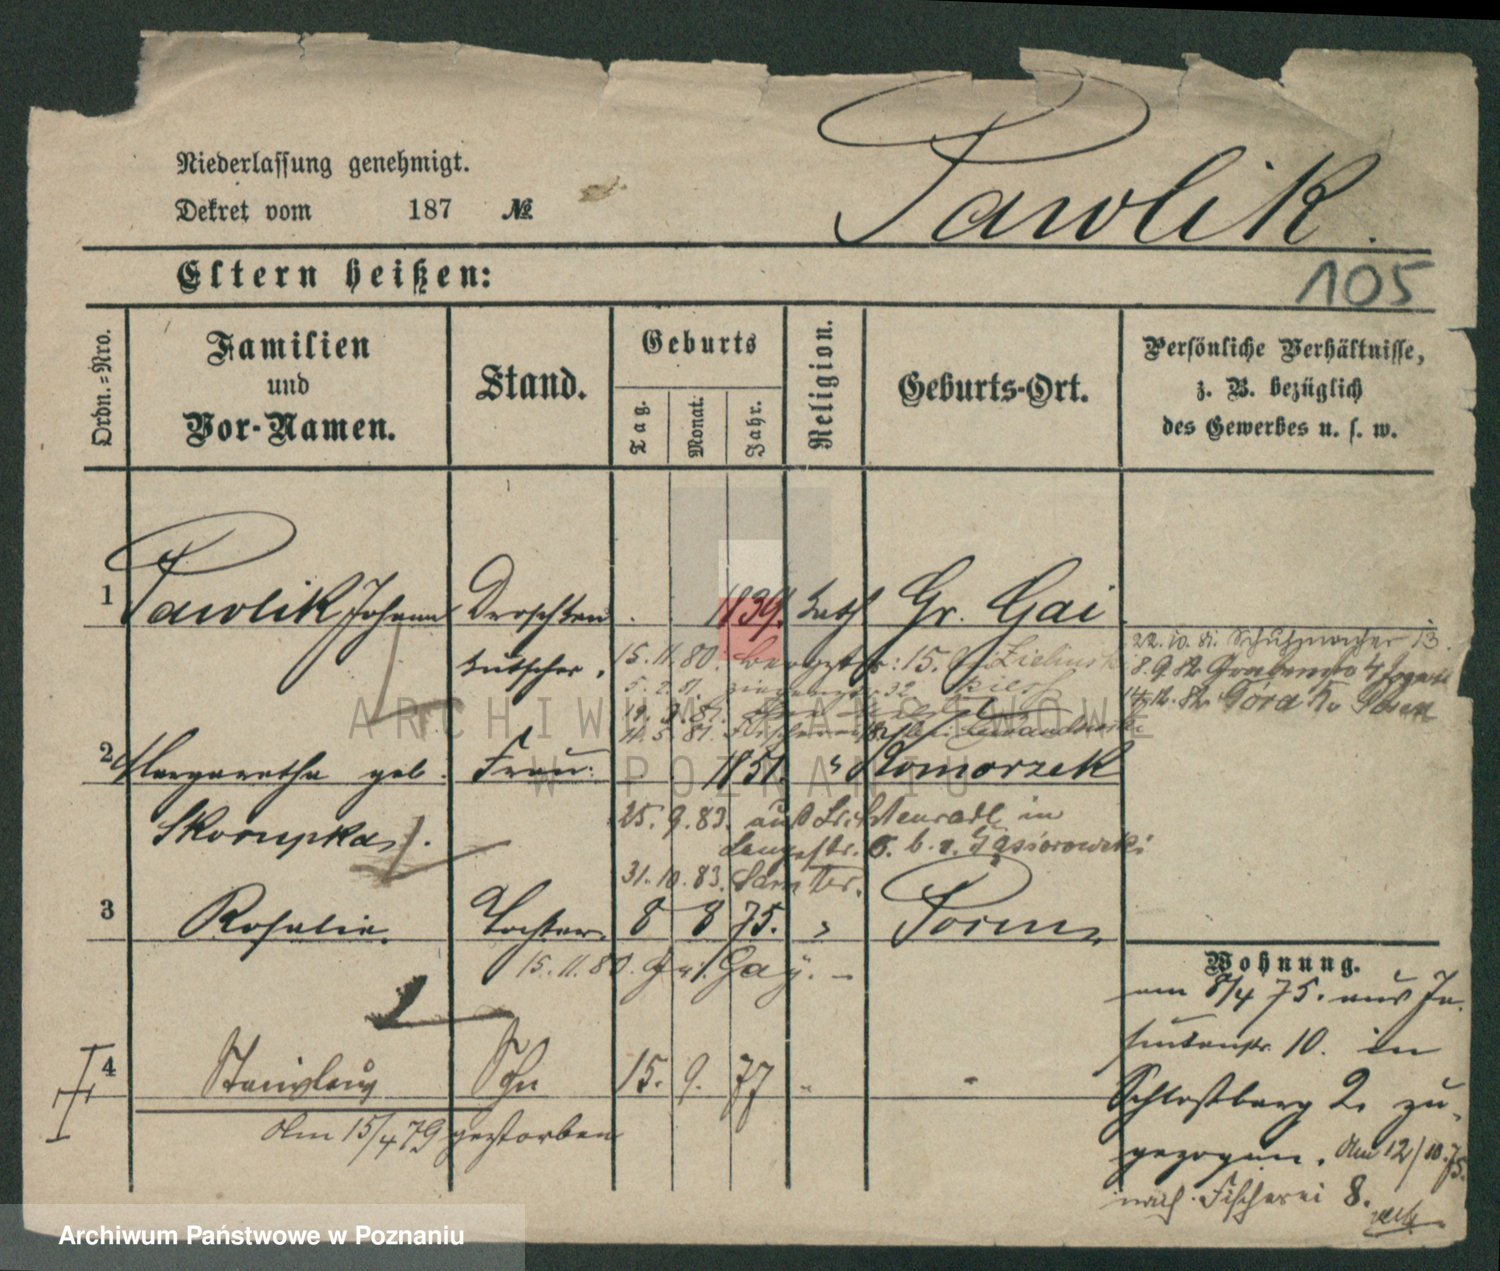 Niederlassung genehmigt.
Dekret vom 187 №
Pawlik.
Eltern heißen:
105
Ordn.=Nro.
Familien
und
Vor-Namen.
Stand.
Geburts
Tag.
Monat.
Jahr.
Religion.
Geburts-Ort.
Persönliche Verhältnisse,
z. B. bezüglich
des Gewerbes u. s. w.
1 Pawlik Johann Droschken 1839. kath Gr. Gai
kutscher.
15.11.80. 15. bei Zielinski
5.2.81. 32
19.3.81.
11.5.81.
22.10.81. Schuhmacher 13.
8.9.82 Graben 4
14.12.82 Góra Kr. Posen
ARCHIWUM PAŃSTWOWE
W POZNANIU
2 Margaretha geb. Frau. 1851. " Komorzek
Skorupka.
25.9.83. aus in
Langestr. 6. b. v. Gąsiorowski
31.10.83. Samter.
3 Rosalie. Tochter. 8 8 75. " Posen
15.11.80. Gay. –
4 Stanislaus Sohn 15. 9. 77 " -
Am 15/4 79 gestorben
Wohnung.
am 8/4 75. aus Je-
suitenstr. 10. in
Schloßberg 2. zu-
gezogen. Am 12/10.75.
nach Fischerei 8.
Archiwum Państwowe w Poznaniu